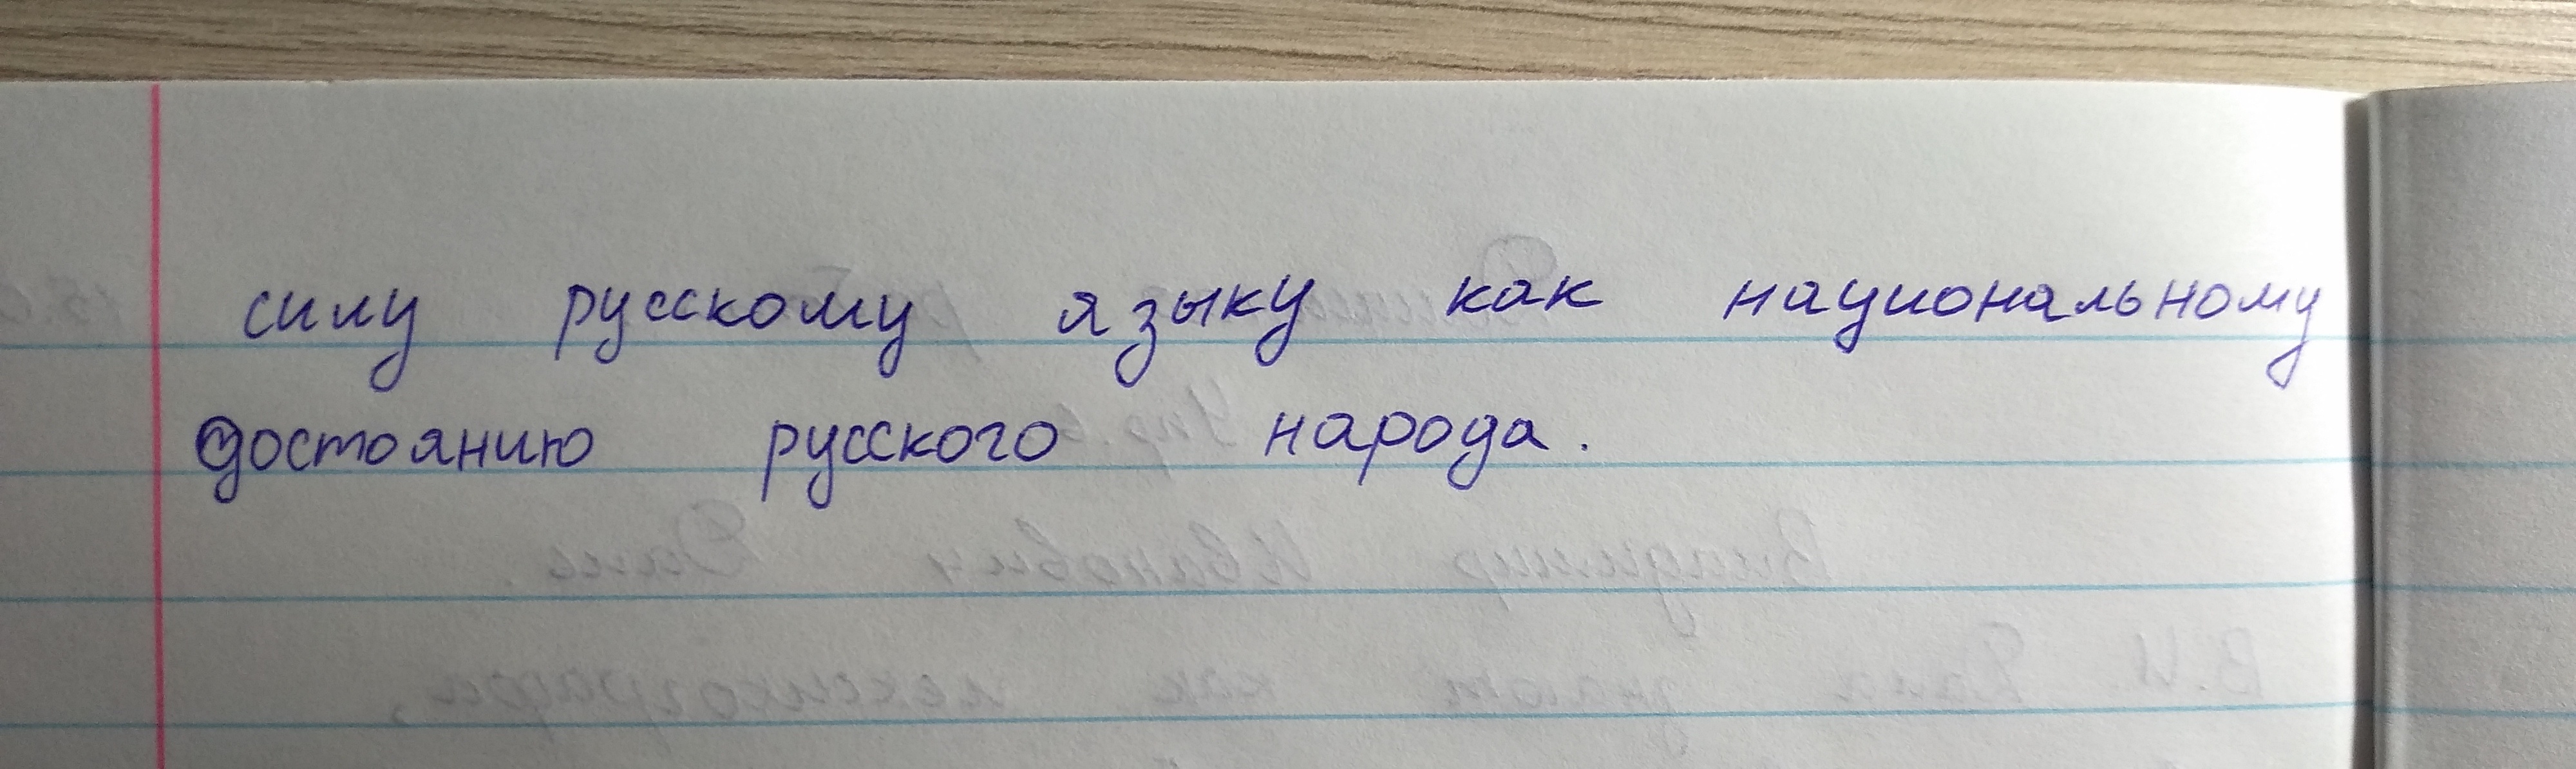 силу русскому языку как национальному
достоянию русского народа.